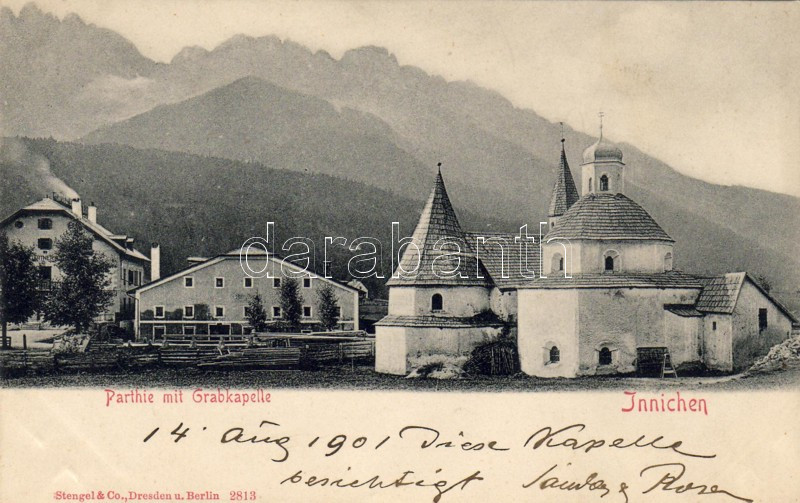 darabanth.com
Parthie mit Grabkapelle
Innichen
14. Aug 1901 Diese Kapelle
besichtigt
Rosa
Stengel & Co., Dresden u. Berlin 2813